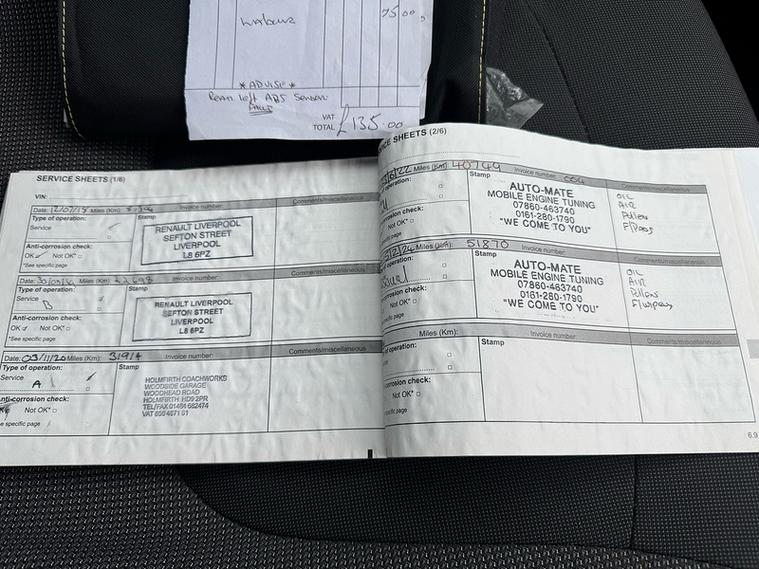 Labour 75.00
*ADVISE*
Rear left ABS Sensor
VAT
TOTAL £135.00
SERVICE SHEETS (1/6)
VIN:
Date: 12/07/15 Miles (Km): Invoice number: Comments/miscellaneous
Type of operation: Stamp
Service
RENAULT LIVERPOOL
SEFTON STREET
LIVERPOOL
L8 6PZ
Anti-corrosion check:
OK Not OK*
*See specific page
Date: Miles (Km): Invoice number: Comments/miscellaneous
Type of operation: Stamp
Service
B
RENAULT LIVERPOOL
SEFTON STREET
LIVERPOOL
L8 6PZ
Anti-corrosion check:
OK Not OK*
*See specific page
Date: 03/11/20 Miles (Km): 31914 Invoice number: Comments/miscellaneous
Type of operation: Stamp
Service
A
HOLMFIRTH COACHWORKS
WOODSIDE GARAGE
WOODHEAD ROAD
HOLMFIRTH HD9 2PR
TEL/FAX 01484 682474
nti-corrosion check:
Not OK*
e specific page
CE SHEETS (2/6)
/22 Miles (Km): 40749 Invoice number: Comments/miscellaneous
of operation: Stamp
AUTO-MATE
MOBILE ENGINE TUNING
07860-463740
0161-280-1790
"WE COME TO YOU"
OIL
AIR
Pollens
corrosion check:
Not OK*
specific page
Miles (Km): 51870 Invoice number: Comments/miscellaneous
of operation: Stamp
AUTO-MATE
MOBILE ENGINE TUNING
07860-463740
0161-280-1790
"WE COME TO YOU"
OIL
AIR
Pollens
corrosion check:
Not OK*
specific page
Miles (Km): Invoice number: Comments/miscellaneous
of operation: Stamp
-corrosion check:
Not OK*
specific page
6.9